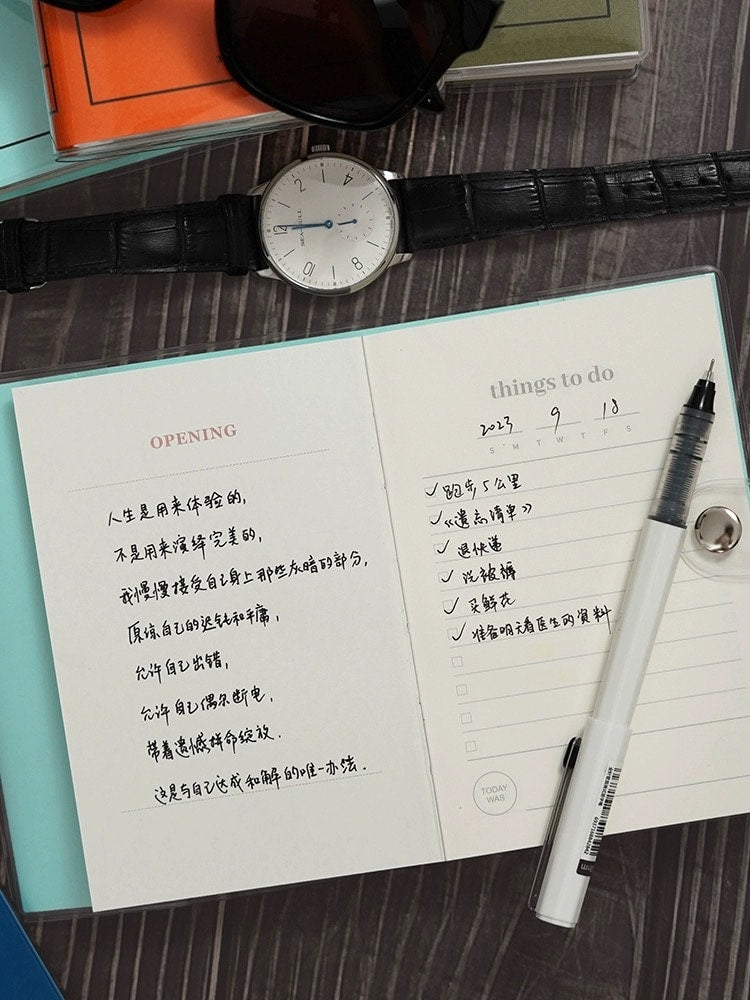 2
4
12
SEA-GULL
10
8
OPENING
人生是用来体验的,
不是用来演绎完美的,
我慢慢接受自己身上那些灰暗的部分,
原谅自己的迟钝和平庸,
允许自己出错,
允许自己偶尔断电,
带着遗憾拼命绽放.
这是与自己达成和解的唯一办法.
things to do
2023 9 18
S M T W T F S
✓ 跑步5公里
✓ 《遗忘清单》
✓ 退快递
✓ 洗被褥
✓ 买鲜花
✓ 准备明天看医生的资料
TODAY
WAS